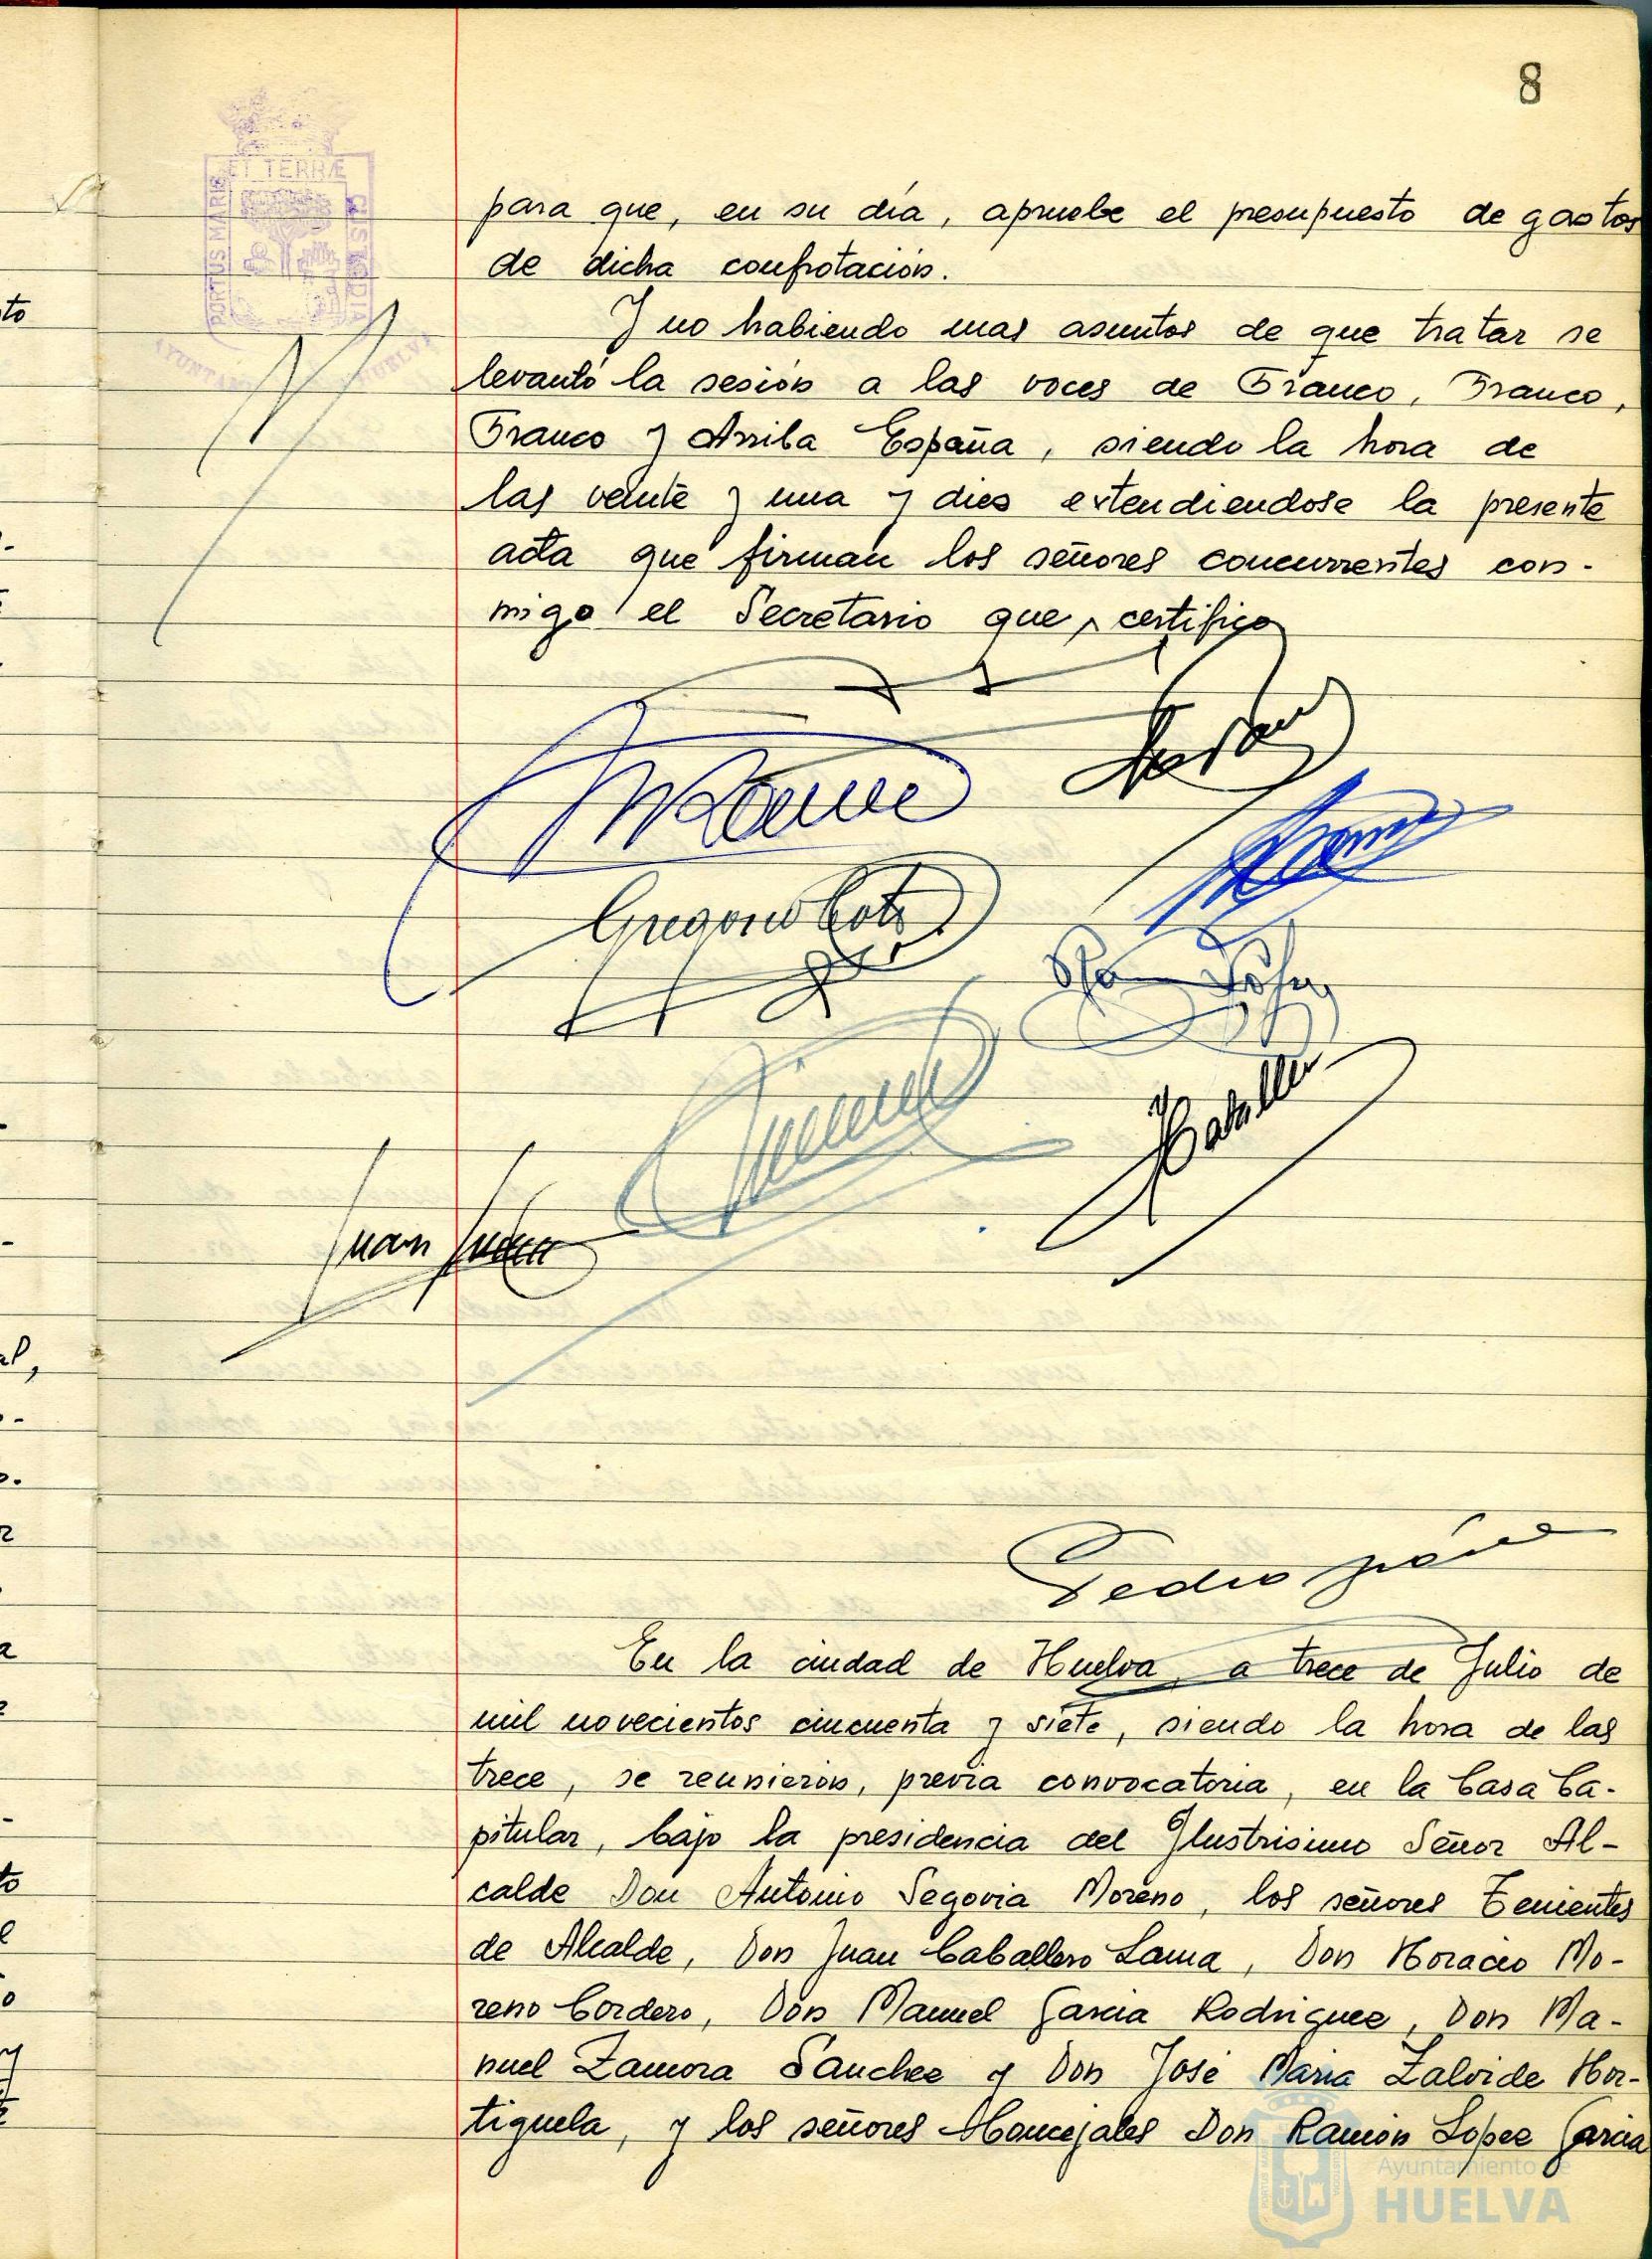 8
ET TERRÆ
PORTUS MARIS
CUSTODIA
para que, en su día, apruebe el presupuesto de gastos
de dicha confrotación.
Y no habiendo mas asuntos de que tratar se
levantó la sesión a las voces de Franco, Franco,
Franco y Arriba España, siendo la hora de
las veinte y una y diez extendiendose la presente
acta que firman los señores concurrentes con-
migo el Secretario que, certifico
Gregorio
Caballero
Juan
Pedro
En la ciudad de Huelva, a trece de Julio de
mil novecientos cincuenta y siete, siendo la hora de las
trece, se reunieron, previa convocatoria, en la Casa Ca-
pitular, bajo la presidencia del Ilustrisimo Señor Al-
calde Don Antonio Segovia Moreno, los señores Tenientes
de Alcalde, Don Juan Caballero Lama, Don Horacio Mo-
reno Cordero, Don Manuel Garcia Rodriguez, Don Ma-
nuel Zamora Sanchez y Don José Maria Zalvide Hor-
tiguela, y los señores Concejales Don Ramón Lopez Garcia
Ayuntamiento de
HUELVA